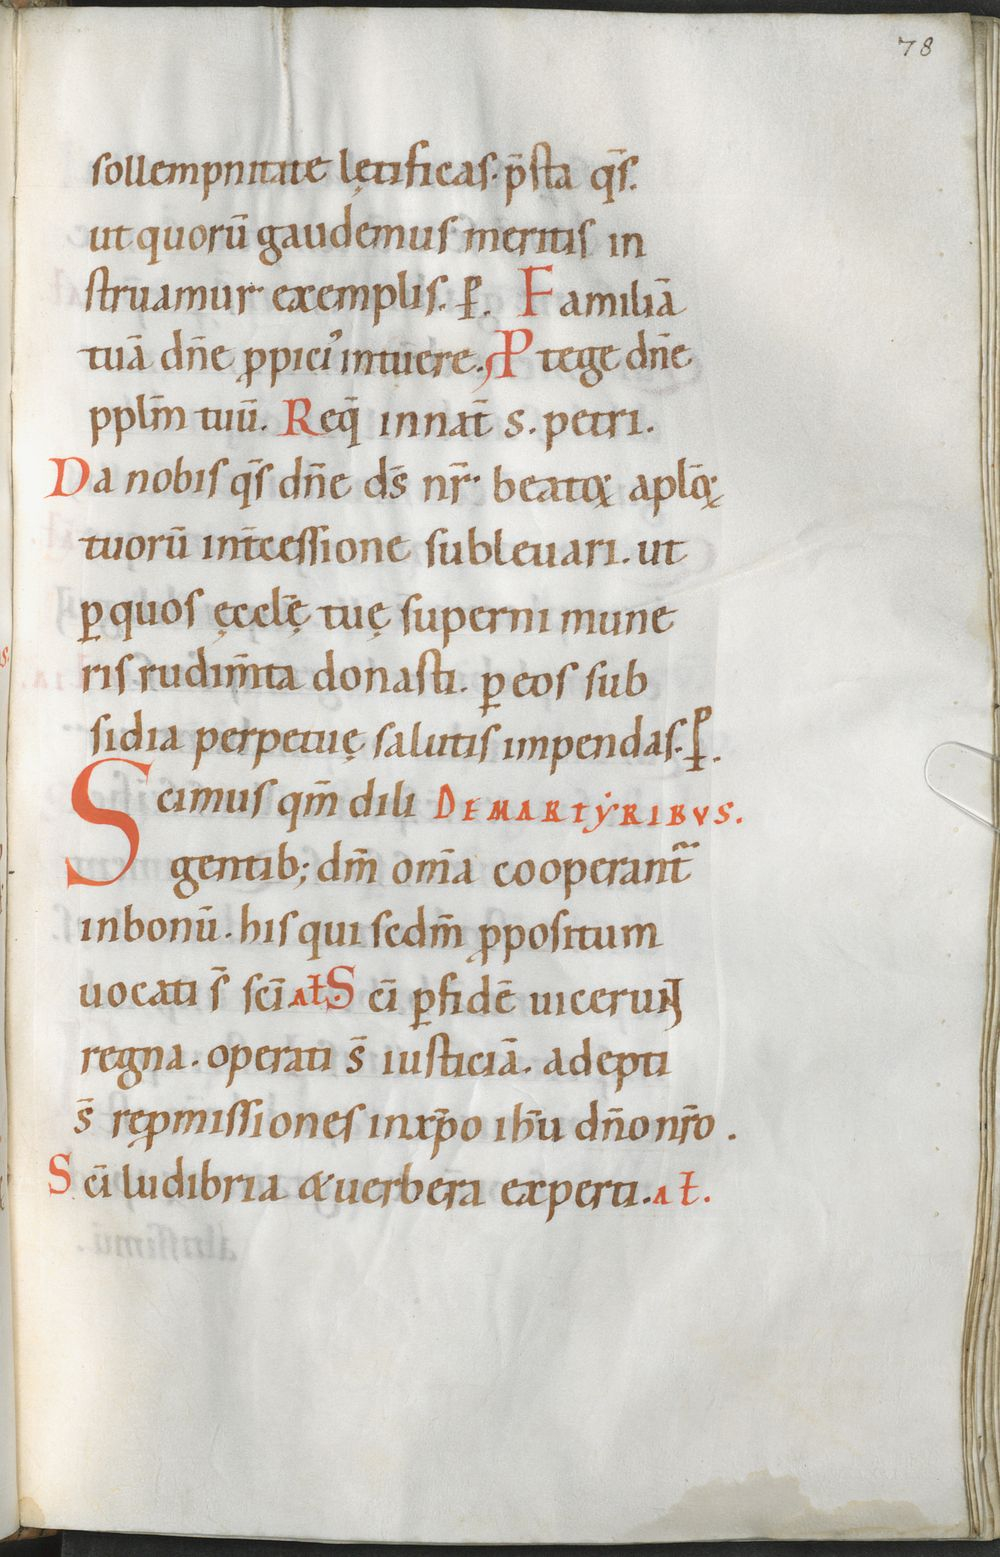 78
sollempnitate lętificas. p̄sta q̄s.
ut quorū gaudemus meritis in
struamur exemplis. P̲. Familiā
tuā dn̄e ꝓpici᾽ intuere. Ꝓtege dn̄e
pplm̄ tuū. Req̄ in nat̄ s. petri.
Da nobis q̄s dn̄e ds̄ nr̄ beatoꝝ aplōꝝ
tuorū int̄cessione subleuari. ut
ꝑ quos ęcclę̄ tuę superni mune
ris rudim̄ta donasti. ꝑ eos sub
sidia perpetuę salutis impendas. P̲.
Scimus qm̄ dili DE MARTYRIBVS.
gentib; dm̄ om̄a cooperant᷑
in bonū. his qui secdm̄ ꝓpositum
uocati s̄ sci᷑ AŁ. Sci᷑ ꝑ fidē uicerunt
regna. operati s̄ iusticiā. adepti
s̄ reꝓmissiones in xp̄o ihū dn̄o nr̄o.
Sci᷑ ludibria & uerbera experti. AŁ.